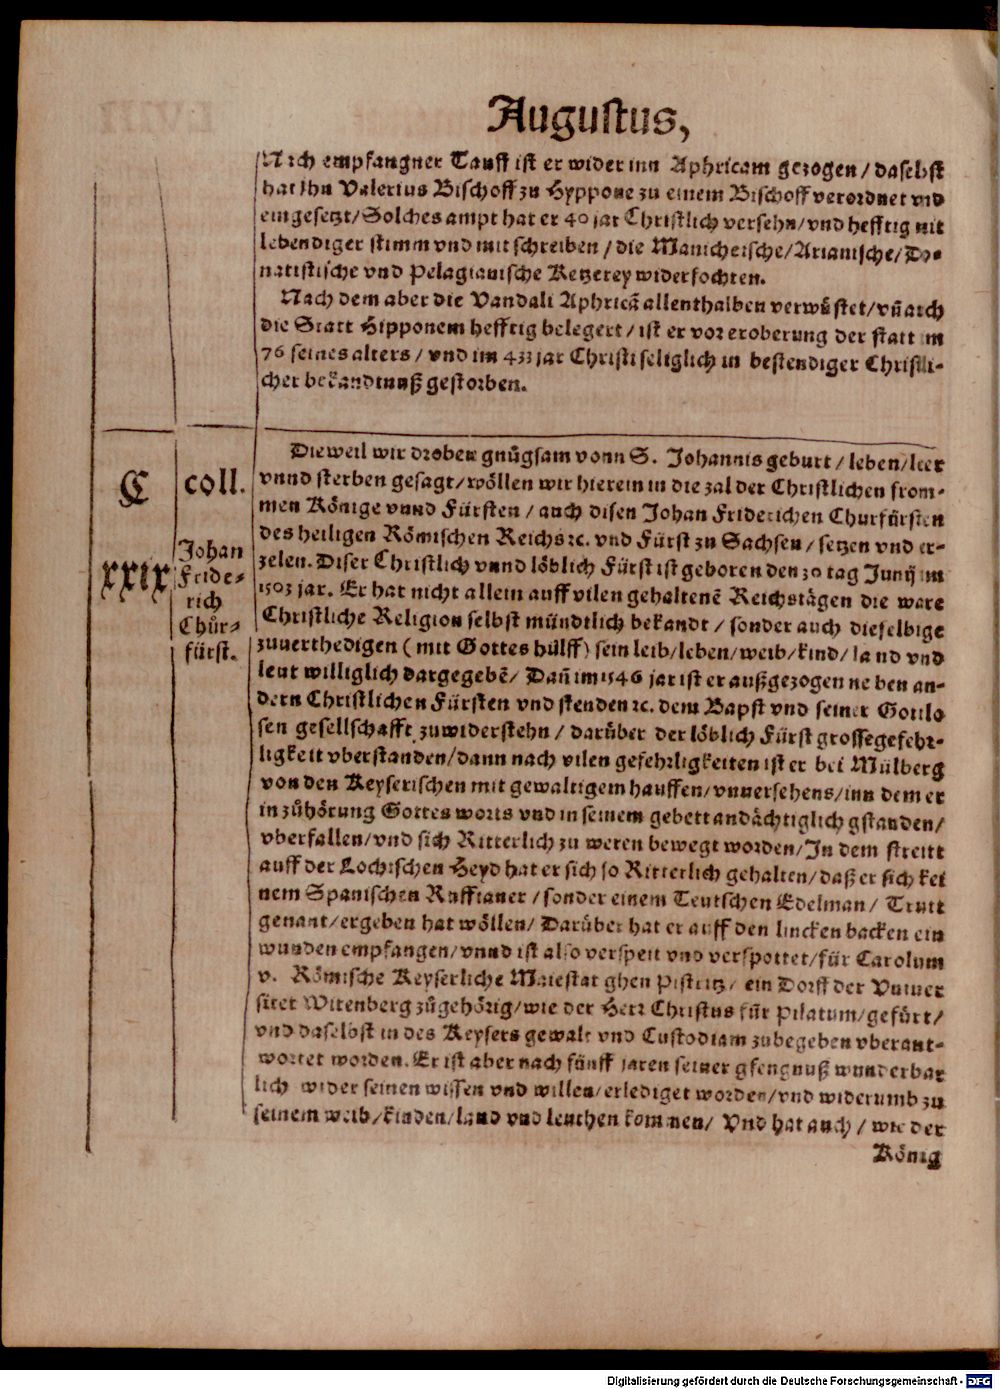 Augustus,
Nach empfangner Tauff ist er wider inn Aphricam gezogen / daselbst
hat jhn Valerius Bischoff zu Hyppone zu einem Bischoff verordnet vnd
eingesetzt / Solches ampt hat er 40 jar Christlich versehn / vnd hefftig mit
lebendiger stimm vnd mit schreiben / die Manicheische / Arianische / Do⸗
natistische vnd Pelagianische Ketzerey widerfochten.
Nach dem aber die Vandali Aphricã allenthalben verwüstet / vñ auch
die Statt Hipponem hefftig belegert / ist er vor eroberung der statt im
76 seines alters / vnd im 433 jar Christi seliglich in bestendiger Christli⸗
cher bekandtnuß gestorben.
C
coll.
xxix
Johan
Fride⸗
rich
Chůr⸗
fürst.
Dieweil wir droben gnůgsam vonn S. Johannis geburt / leben / leer
vnnd sterben gesagt / wöllen wir hierein in die zal der Christlichen from⸗
men Könige vnnd Fürsten / auch disen Johan Friderichen Churfürsten
des heiligen Römischen Reichs ꝛc. vnd Fürst zu Sachsen / setzen vnd er⸗
zelen. Diser Christlich vnnd löblich Fürst ist geboren den 30 tag Junij im
1503 jar. Er hat nicht allein auff vilen gehaltenẽ Reichstägen die ware
Christliche Religion selbst mündtlich bekandt / sonder auch dieselbige
zuuerthedigen ( mit Gottes hülff ) sein leib / leben / weib / kind / land vnd
leut williglich dargegebẽ / Dañ im 1546 jar ist er außgezogen neben an⸗
dern Christlichen Fürsten vnd stenden ꝛc. dem Bapst vnd seiner Gottlo
sen gesellschafft zuwiderstehn / darüber der löblich Fürst grosse gefehr⸗
ligkeit vberstanden / dann nach vilen gefehrligkeiten ist er bei Mülberg
von den Keyserischen mit gewaltigem hauffen / vnuersehens / inn dem er
in zůhörung Gottes worts vnd in seinem gebett andächtiglich gstanden /
vberfallen / vnd sich Ritterlich zu weren bewegt worden / In dem streitt
auff der Lochischen Heyd hat er sich so Ritterlich gehalten / daß er sich kei
nem Spanischen Ruffianer / sonder einem Teutschen Edelman / Trutt
genant / ergeben hat wöllen / Darüber hat er auff den lincken backen ein
wunden empfangen / vnnd ist also verspeit vnd verspottet / für Carolum
v. Römische Keyserliche Maiestat ghen Pistritz / ein Dorff der Vniuer
sitet Witenberg zůgehörig / wie der Herr Christus für Pilatum / gefürt /
vnd daselbst in des Keysers gewalt vnd Custodiam zubegeben vberant⸗
wortet worden. Er ist aber nach fünff jaren seiner gfengnuß wunderbar
lich wider seinen wissen vnd willen / erlediget worden / vnd widerumb zu
seinem weib / kinden / land vnd leuthen kommen / Vnd hat auch / wie der
König
Digitalisierung gefördert durch die Deutsche Forschungsgemeinschaft - DFG